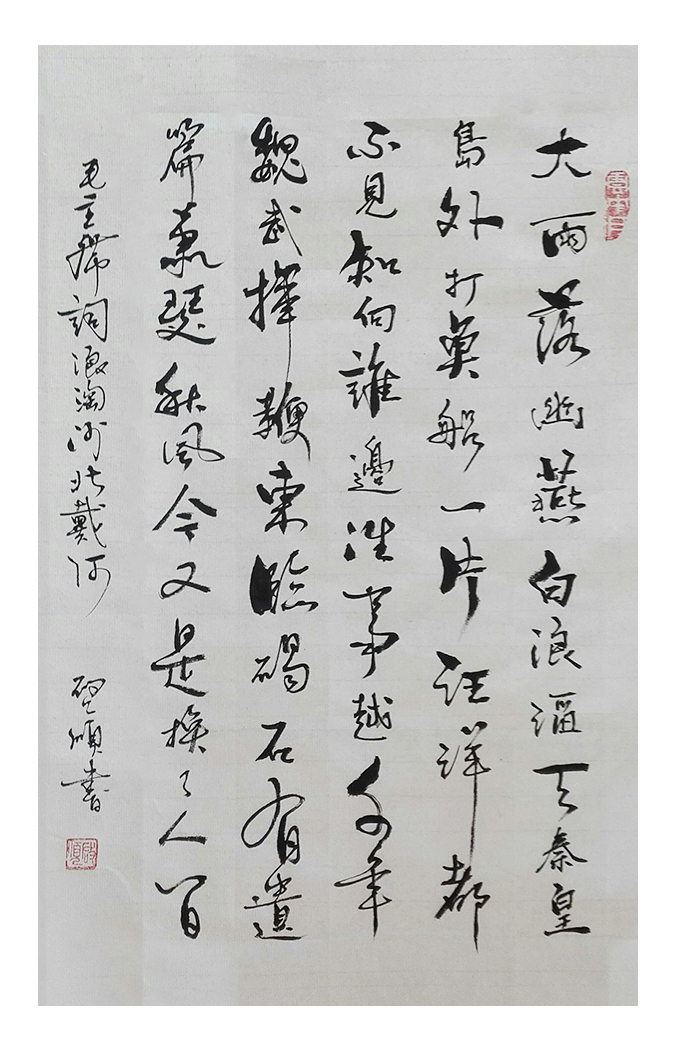 大雨落幽燕白浪滔天秦皇
島外打魚船一片汪洋都
不見知向誰邊往事越千年
魏武揮鞭東臨碣石有遺
篇蕭瑟秋風今又是換了人間
毛主席詞浪淘沙北戴河 啓順書